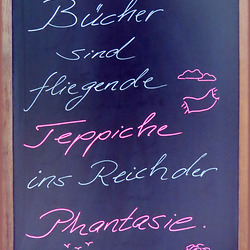 Bücher
sind
fliegende
Teppiche
ins Reich der
Phantasie.